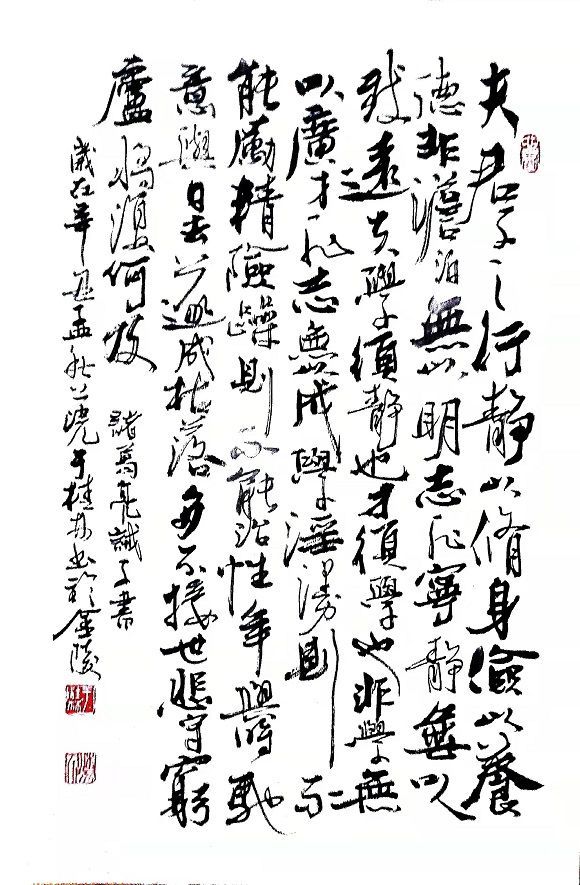 夫君子之行靜以脩身儉以養
德非澹泊無以明志非寧靜無以
致遠夫學須靜也才須學也非學無
以廣才非志無以成學淫漫則不
能勵精險躁則不能治性年與時馳
意與日去遂成枯落多不接世悲守窮
廬將復何及
諸葛亮誡子書
歲在辛丑孟秋于桂林書於金陵